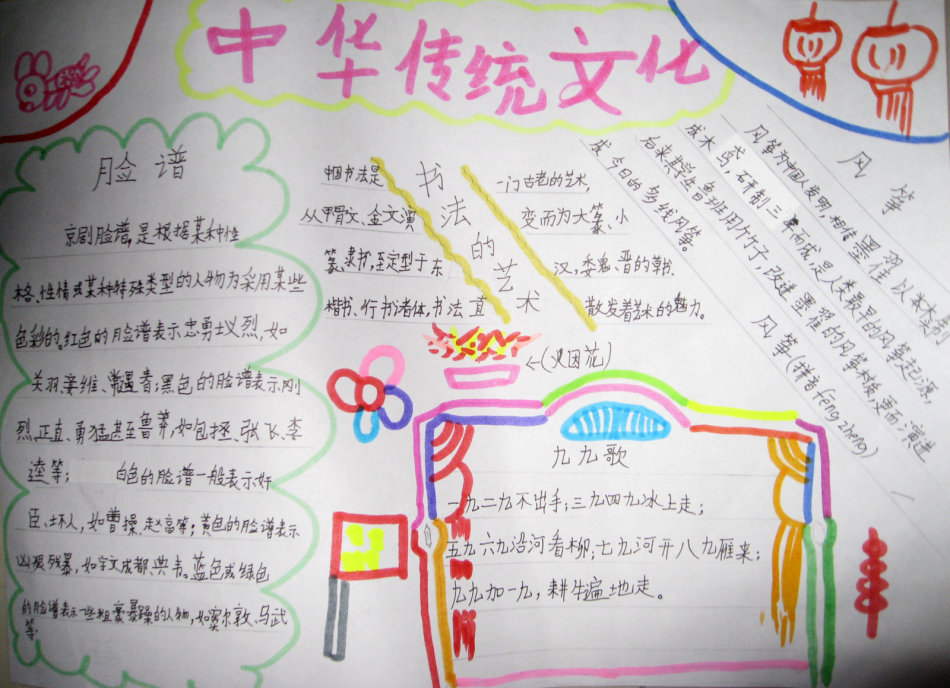 中华传统文化
脸谱
京剧脸谱,是根据某种性
格、性情或某种特殊类型的人物为采用某些
色彩的。红色的脸谱表示忠勇士义烈,如
关羽、姜维、常遇春;黑色的脸谱表示刚
烈、正直、勇猛甚至鲁莽,如包拯、张飞、李
逵等;白色的脸谱一般表示奸
臣、坏人,如曹操、赵高等;黄色的脸谱表示
凶狠残暴,如宇文成都、典韦。蓝色或绿色
的脸谱表示一些粗豪暴躁的人物,如窦尔敦、马武
等
书法的艺术
中国书法是一门古老的艺术,
从甲骨文、金文演变而为大篆、小
篆、隶书,至定型于东汉,委鬼、晋的草书
楷书、行书诸体,书法直散发着艺术的魅力。
←(火因花)
风筝
风筝为中国人发明,相传墨翟以木制
成木鸟,石研制三年而成,是人类最早的风筝起源,
后来其学生鲁班用竹子,改进墨翟的风筝材质,更而演进
成今日的多线风筝。
风筝(拼音fengzheng)
九九歌
一九二九不出手;三九四九冰上走;
五九六九沿河看柳;七九河开八九雁来;
九九加一九,耕牛遍地走。